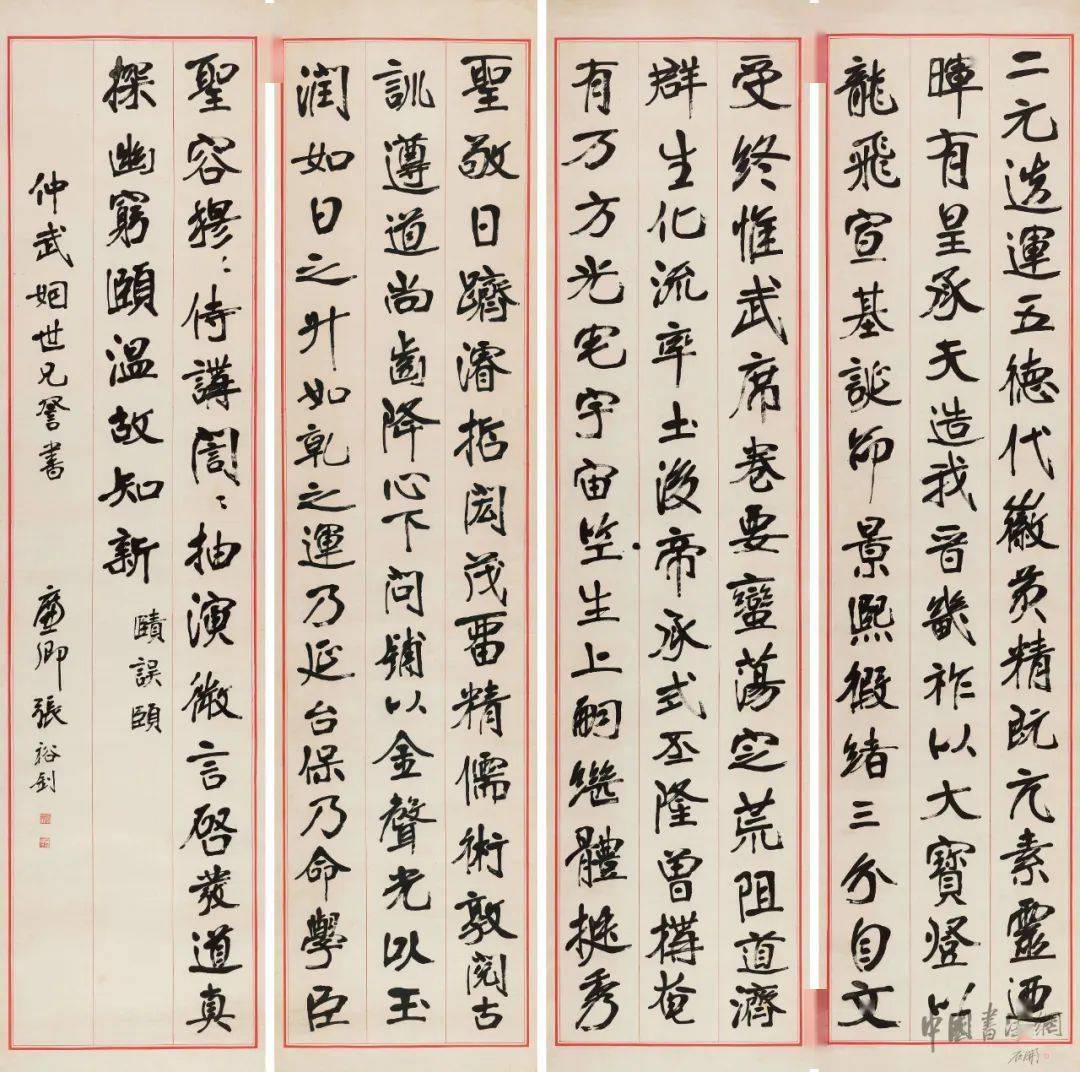 二元迭運五德代徽黃精既亢素靈迺
暉有呈承天造我晉畿祚以大寶燈以
龍飛宣基誕命景熙假緒三分自文
受終惟武席卷要蠻蕩定荒阻道濟
群生化流率土後帝承式丕隆曾構奄
有万方光宅宇宙竺生上嗣繼體挺秀
聖敬日躋濬哲閎茂畱精儒術敦閱古
訓遵道尚齒降心下問鋪以金聲光以玉
潤如日之升如乾之運乃延台保乃命學臣
聖容穆〻侍講誾〻抽演微言啓發道真
探幽窮頤溫故知新
賾誤頤
仲武姻世兄詧書
廉卿張裕釗
中國書法網